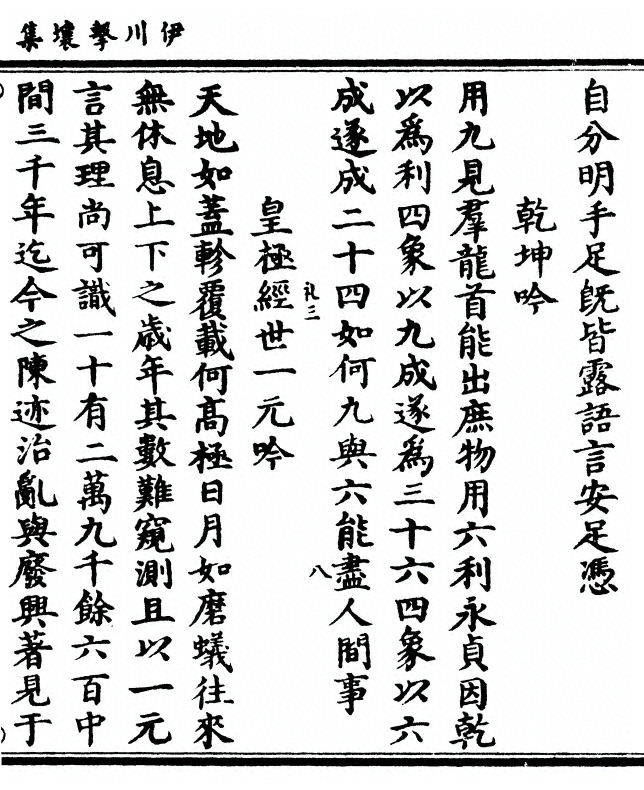 伊川擊壤集
自分明手足旣皆露語言安足憑
乾坤吟
用九見羣龍首能出庶物用六利永貞因乾
以爲利四象以九成遂爲三十六四象以六
成遂成二十四如何九與六能盡人間事
礼三
八
皇極經世一元吟
天地如蓋軫覆載何高極日月如磨蟻往來
無休息上下之歲年其數難窺測且以一元
言其理尚可識一十有二萬九千餘六百中
間三千年迄今之陳迹治亂與廢興著見于